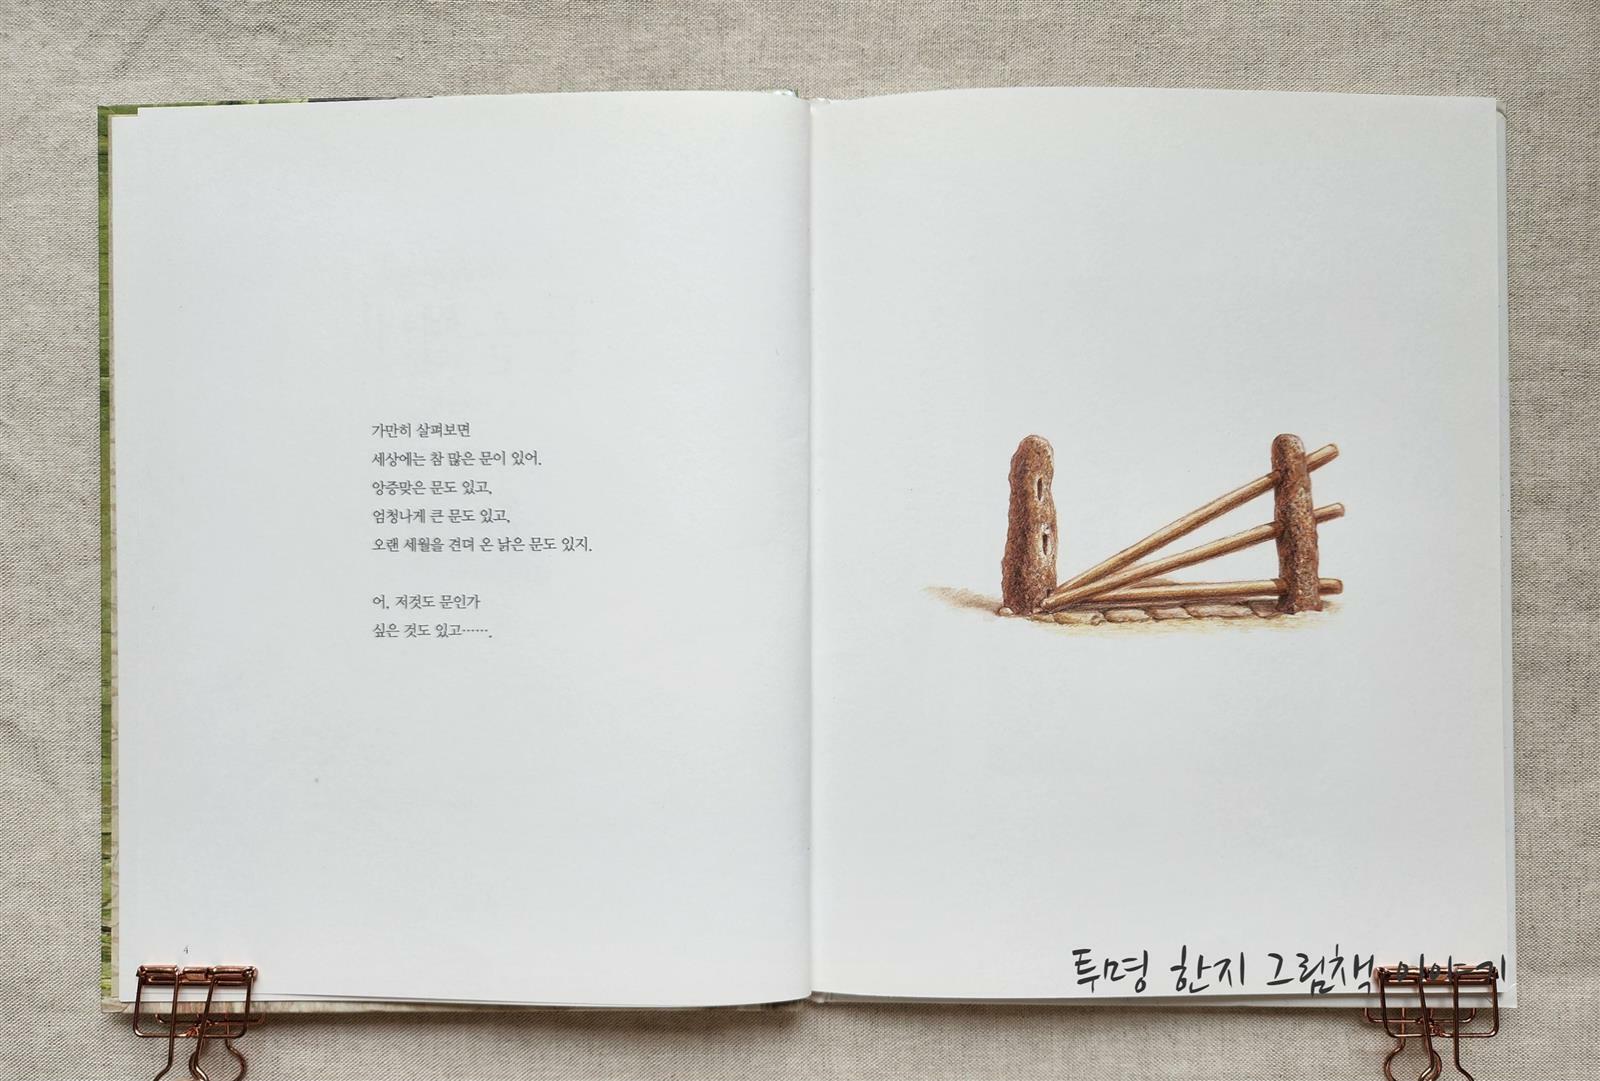 가만히 살펴보면
세상에는 참 많은 문이 있어.
앙증맞은 문도 있고,
엄청나게 큰 문도 있고,
오랜 세월을 견뎌 온 낡은 문도 있지.
어, 저것도 문인가
싶은 것도 있고…….
4
투명 한지 그림책 이야기